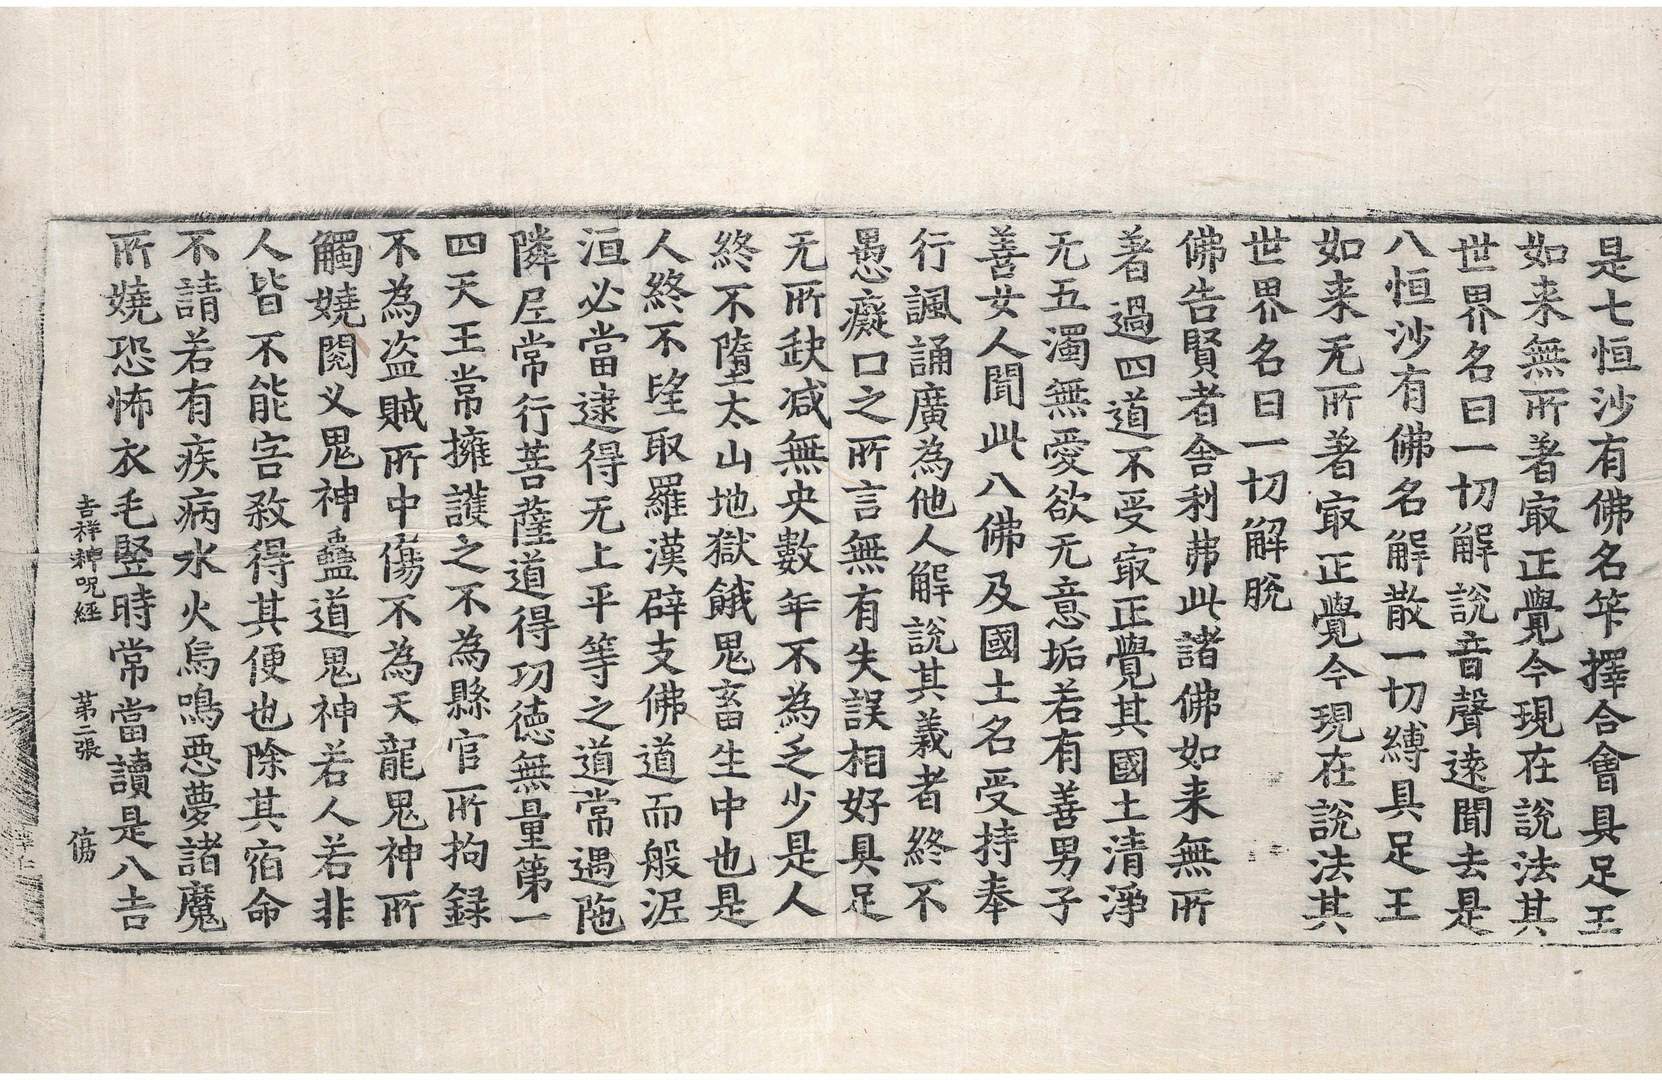 是七恒沙有佛名等擇合會具足王
如来無所著㝡正覺今現在說法其
世界名曰一切解說音聲遠聞去是
八恒沙有佛名解散一切縛具足王
如来无所著㝡正覺今現在說法其
世界名曰一切解脫
佛告賢者舍利弗此諸佛如来無所
著過四道不受㝡正覺其國土清淨
无五濁無愛欲无意垢若有善男子
善女人聞此八佛及國土名受持奉
行諷誦廣為他人解說其義者終不
愚癡口之所言無有失誤相好具足
无所缺减無央數年不為乏少是人
終不墮太山地獄餓鬼畜生中也是
人終不望取羅漢辟支佛道而般泥
洹必當逮得无上平等之道常遇陁
隣尼常行菩薩道得功德無量第一
四天王常擁護之不為縣官所拘録
不為盗賊所中傷不為天龍鬼神所
觸嬈閱叉鬼神蠱道鬼神若人若非
人皆不能害煞得其便也除其宿命
不請若有疾病水火烏鳴惡夢諸魔
所嬈恐怖衣毛竪時常當讀是八吉
吉祥神呪經 第二張 傷